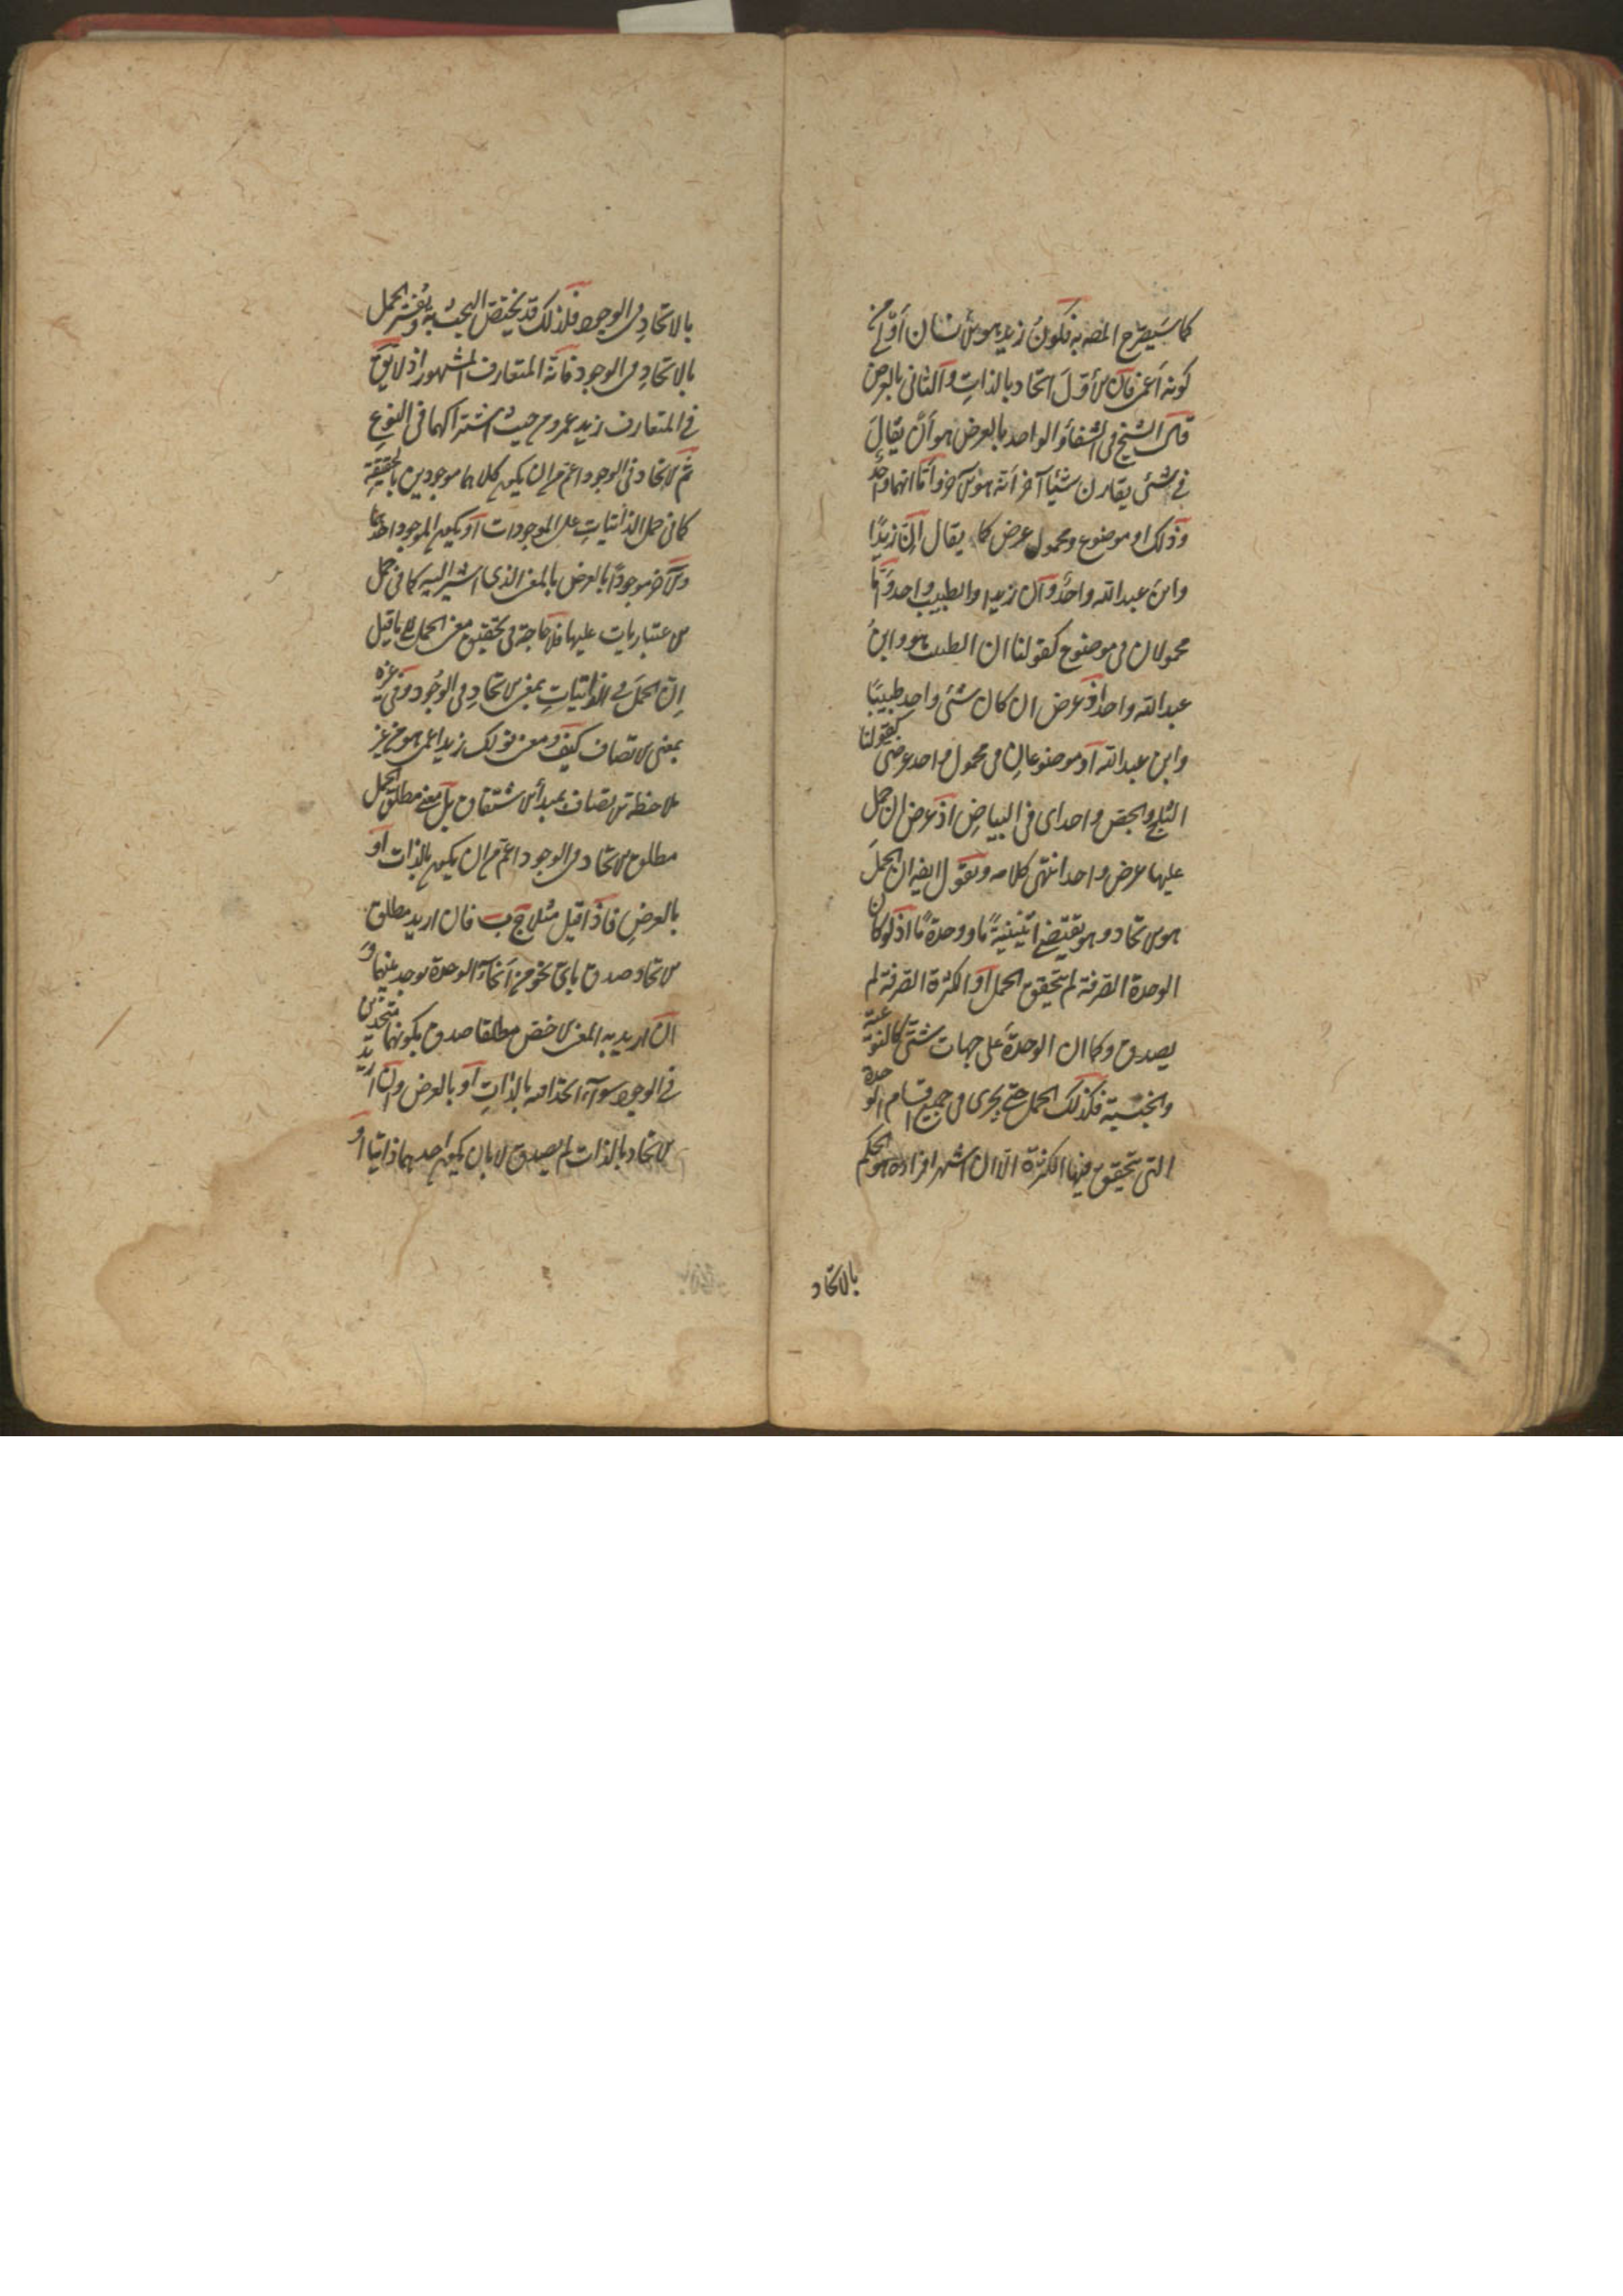 كما سيصرح المصه به فكون زيد هو الانسان أولى من
كونه أعمى فان الأول اتحاد بالذات والثانى بالعرض
قال الشيخ فى الشفاء والواحد بالعرض هو أن يقال
فى شئ يقارن شيئا آخر أنه هو الآخر وأنهما واحد
وذلك اما موضوع ومحمول عرضى كما يقال ان زيدا
وابن عبدالله واحد وان زيدا والطبيب واحد واما
محمولان فى موضوع كقولنا ان الطبيب هو وابن
عبدالله واحد اذ عرض ان كان شئ واحد طبيبا
وابن عبدالله أو موضوعان فى محمول واحد عرضى كقولنا
الثلج والجص واحد اى فى البياض اذ عرض ان حمل
عليهما عرض واحد انتهى كلامه ونقول ايضا ان الحمل
هو الاتحاد وهو يقتضى اثنينية ما ووحدة ما اذ لو كان
الوحدة الصرفة لم يتحقق الحمل أو الكثرة الصرفة لم
يصدق وكما ان الوحدة على جهات شتى كالنوعية
والجنسية فكذلك الحمل حتى يجرى فى جميع اقسام الوحدة
التى يتحقق فيها الكثرة الا ان اشهر افراده هو الحكم
بالاتحاد
بالاتحاد فى الوجود فلذلك قد يختص البحث به ويفسر الحمل
بالاتحاد فى الوجود فانه المتعارف المشهور اذ لا يق
فى المتعارف زيد عمرو من حيث اشتراكهما فى النوع
ثم الاتحاد فى الوجود اعم من ان يكون كلاهما موجودين بالحقيقة
كما فى حمل الذاتيات على الموجودات أو يكون الموجود احدهما
والآخر موجودا بالعرض بالمعنى الذى اشير اليه كما فى حمل
الاعتباريات عليها فلا حاجة فى تحقيق معنى الحمل الى ما قيل
ان الحمل فى الذاتيات بمعنى الاتحاد فى الوجود وفى غيره
بمعنى الاتصاف كيف ومعنى قولك زيد اعمى هو من غير
ملاحظة الاتصاف بمبدأ الاشتقاق بل معنى مطلق الحمل
مطلق الاتحاد فى الوجود اعم من ان يكون بالذات أو
بالعرض فاذا قيل مثلا ج ب فان اريد مطلق
الاتحاد صدق باى نحو من أنحاء الوحدة يوجد بينهما و
ان اريد به المعنى الاخص مطلقا صدق بكونهما متحدين
فى الوجود سواء اتحدا فيه بالذات أو بالعرض وان اريد
الاتحاد بالذات لم يصدق الا بان يكون احدهما ذاتيا أو